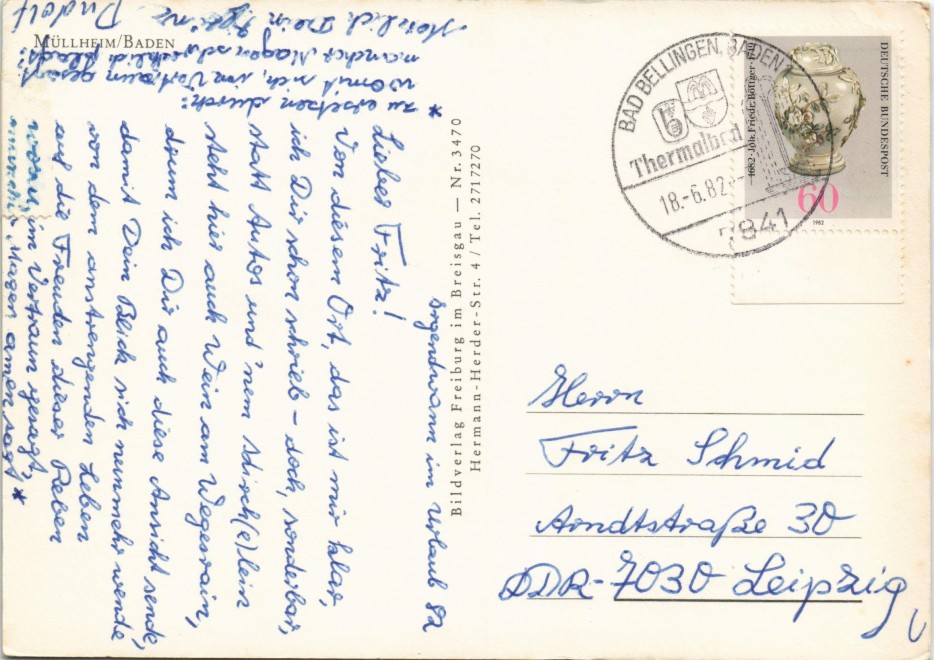 MÜLLHEIM/BADEN
Irgendwann im Urlaub 82
Lieber Fritz!
Von diesem Ort, das ist mir klar,
ich Dir schon schrieb – doch, sonderbar,
statt Autos und 'nem Hirsch(e)lein
steht hier auch Wein am Wegesrain,
drum ich Dir auch diese Ansicht sende,
damit Dein Blick sich nunmehr wende
von dem anstrengenden Leben
auf die Freuden dieser Reben
woran, im Vertraun gesagt,
mancher Magen amen sagt *
* zu ersetzen durch:
womit sich, im Vertraun gesagt
mancher Magen schrecklich plagt!
Herzlich Dein
Rudolf
Bildverlag Freiburg im Breisgau — Nr. 3470
Hermann-Herder-Str. 4 / Tel. 2717270
BAD BELLINGEN, BADEN
Thermalbad
18.-6.82
7841
1682 Joh. Friedr. Böttger
DEUTSCHE BUNDESPOST
60
1982
Herrn
Fritz Schmid
Arndtstraße 30
DDR-7030 Leipzig